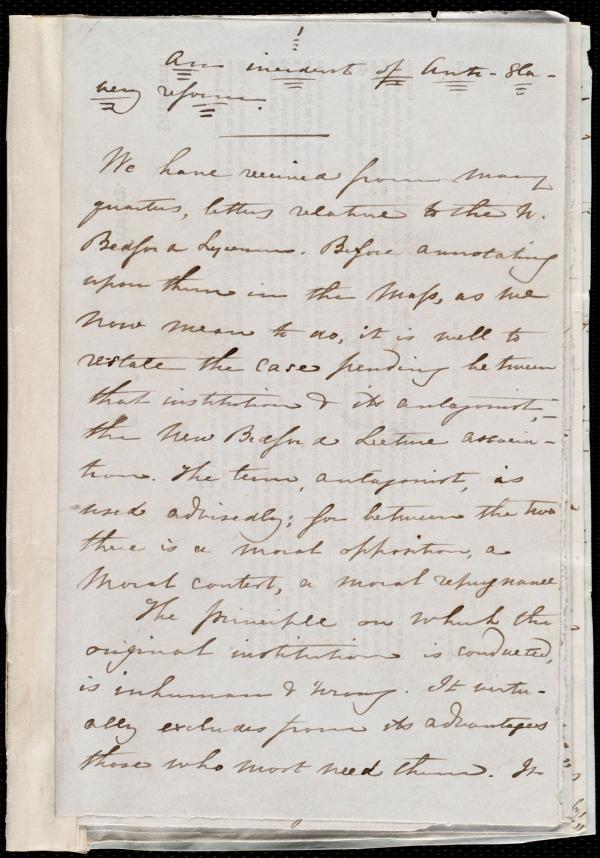 An incident of Anti-Sla-
very reform.
We have received from many
quarters, letters relative to the N.
Bedford Lyceum. Before annotating
upon them in the Mass, as we
now mean to do, it is well to
restate the case pending between
that institution & its antagonist,—
the New Bedford Lecture associa-
tion. The term, antagonist, is
used advisedly; for between the two
there is a moral opposition, a
moral contest, a moral repugnance.
The principle on which the
original institution is conducted,
is inhuman & wrong. It virtu-
ally excludes from its advantages
those who most need them. It